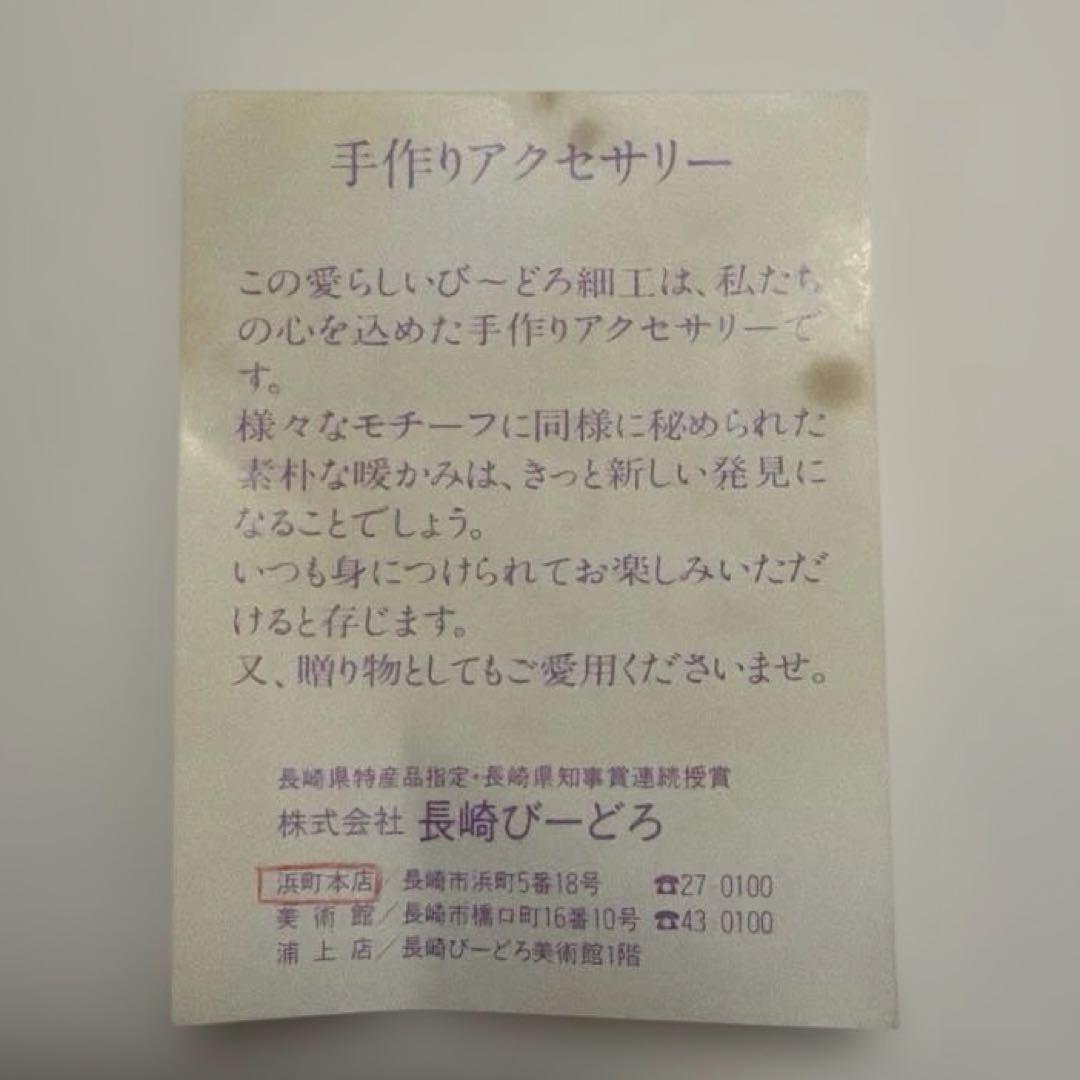 手作りアクセサリー
この愛らしいび〜どろ細工は、私たち
の心を込めた手作りアクセサリーで
す。
様々なモチーフに同様に秘められた
素朴な暖かみは、きっと新しい発見に
なることでしょう。
いつも身につけられてお楽しみいただ
けると存じます。
又、贈り物としてもご愛用くださいませ。
長崎県特産品指定・長崎県知事賞連続授賞
株式会社 長崎びーどろ
浜町本店/長崎市浜町5番18号 ☎27 0100
美術館/長崎市橋口町16番10号 ☎43 0100
浦上店/長崎びーどろ美術館1階